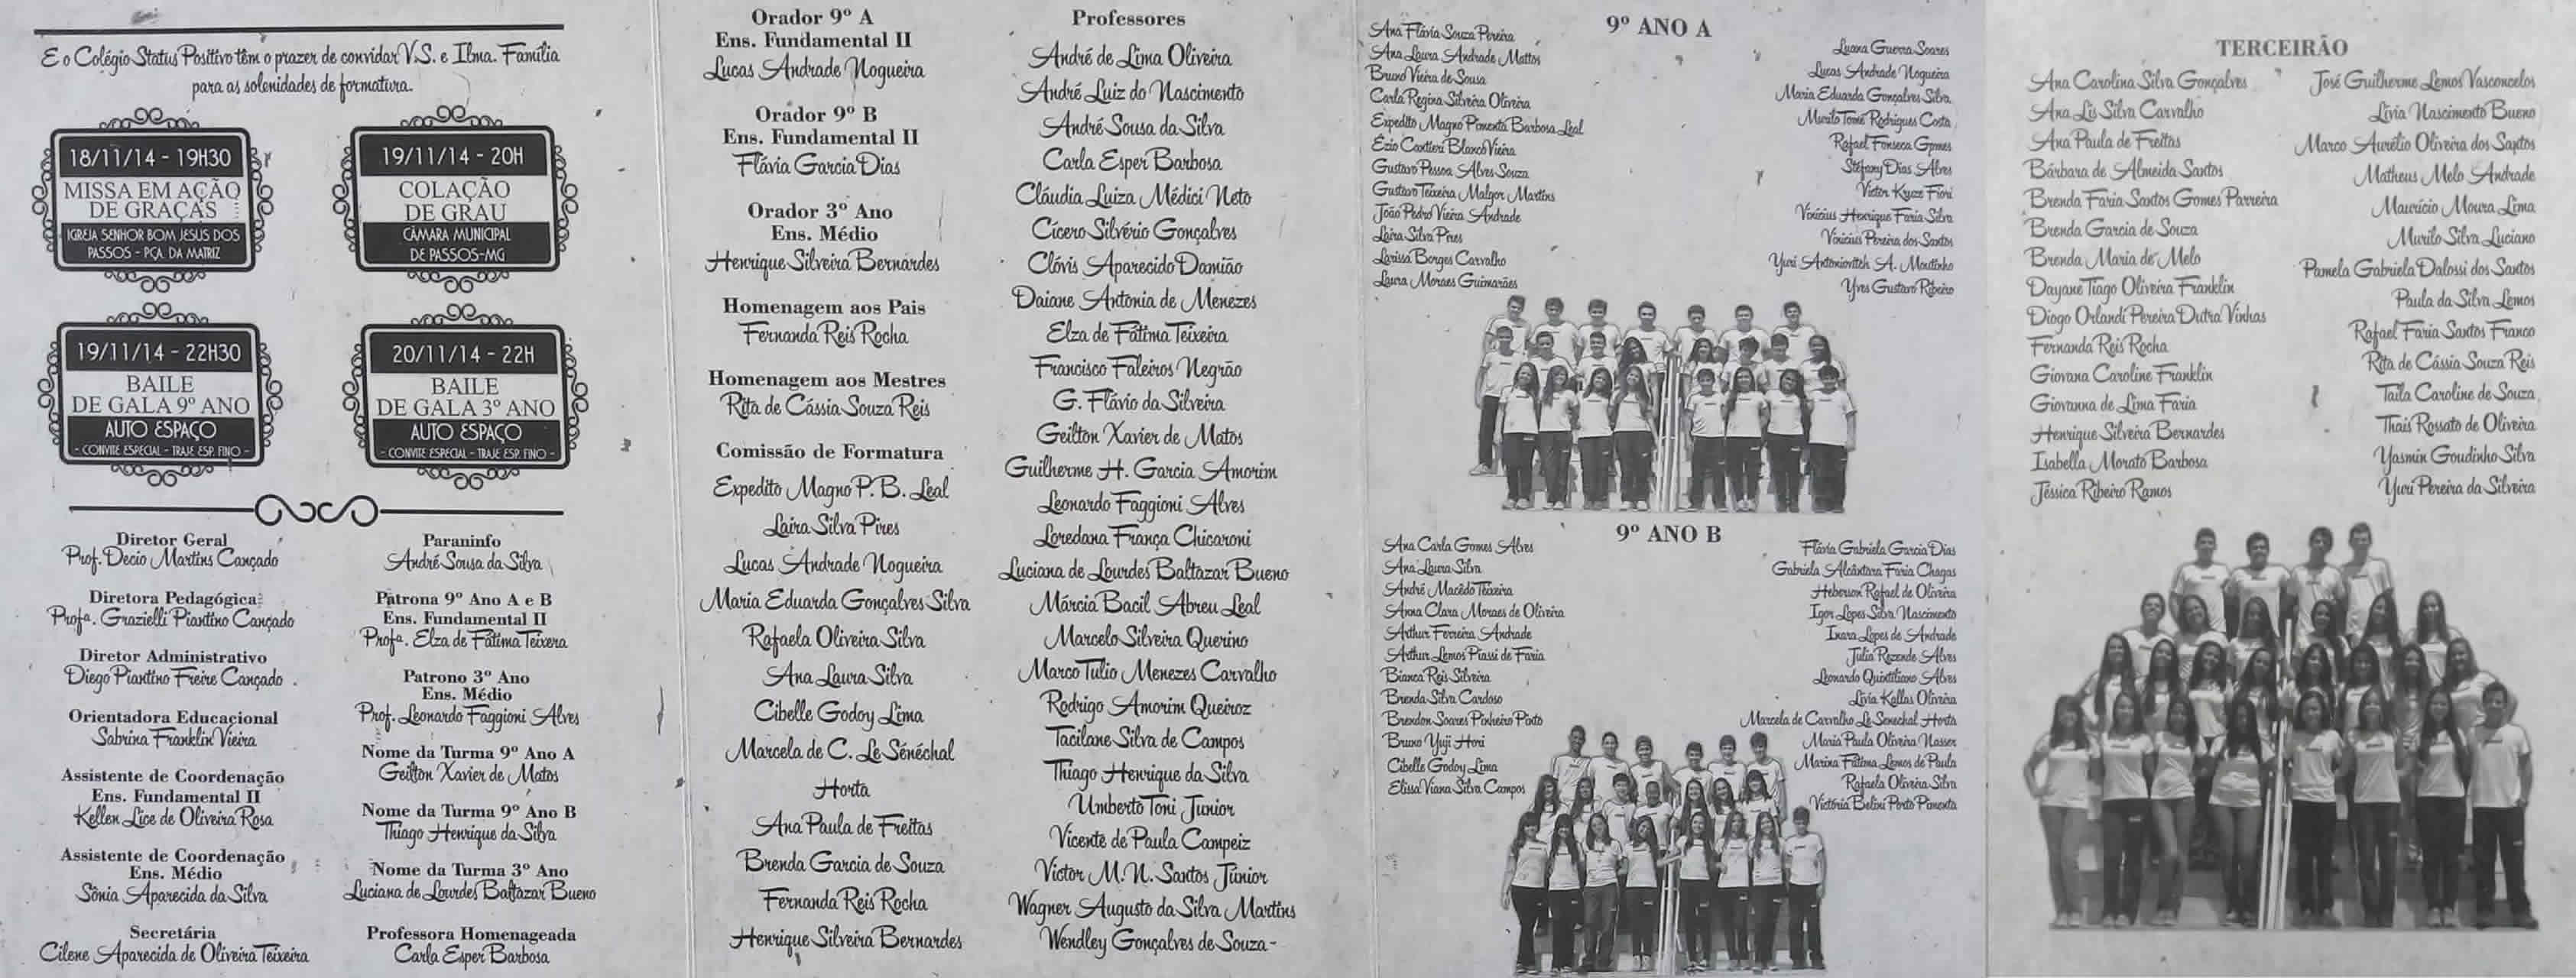 E o Colégio Status Positivo têm o prazer de convidar V.S. e Ilma. Família
para as solenidades de formatura.
18/11/14 - 19H30
MISSA EM AÇÃO
DE GRAÇAS
IGREJA SENHOR BOM JESUS DOS
PASSOS - PÇA. DA MATRIZ
19/11/14 - 20H
COLAÇÃO
DE GRAU
CÂMARA MUNICIPAL
DE PASSOS-MG
19/11/14 - 22H30
BAILE
DE GALA 9º ANO
AUTO ESPAÇO
- CONVITE ESPECIAL - TRAJE ESP. FINO -
20/11/14 - 22H
BAILE
DE GALA 3º ANO
AUTO ESPAÇO
- CONVITE ESPECIAL - TRAJE ESP. FINO -
Diretor Geral
Prof. Decio Martins Cançado
Diretora Pedagógica
Profª. Grazielli Piantino Cançado
Diretor Administrativo
Diego Piantino Freire Cançado
Orientadora Educacional
Sabrina Franklin Vieira
Assistente de Coordenação
Ens. Fundamental II
Kellen Lice de Oliveira Rosa
Assistente de Coordenação
Ens. Médio
Sônia Aparecida da Silva
Secretária
Cilene Aparecida de Oliveira Teixeira
Paraninfo
André Sousa da Silva
Patrona 9º Ano A e B
Ens. Fundamental II
Profª. Elza de Fátima Teixera
Patrono 3º Ano
Ens. Médio
Prof. Leonardo Faggioni Alves
Nome da Turma 9º Ano A
Geilton Xavier de Matos
Nome da Turma 9º Ano B
Thiago Henrique da Silva
Nome da Turma 3º Ano
Luciana de Lourdes Baltazar Bueno
Professora Homenageada
Carla Esper Barbosa
Orador 9º A
Ens. Fundamental II
Lucas Andrade Nogueira
Orador 9º B
Ens. Fundamental II
Flávia Garcia Dias
Orador 3º Ano
Ens. Médio
Henrique Silveira Bernardes
Homenagem aos Pais
Fernanda Reis Rocha
Homenagem aos Mestres
Rita de Cássia Souza Reis
Comissão de Formatura
Expedito Magno P. B. Leal
Laira Silva Pires
Lucas Andrade Nogueira
Maria Eduarda Gonçalves Silva
Rafaela Oliveira Silva
Ana Laura Silva
Cibelle Godoy Lima
Marcela de C. Le Sénéchal
Horta
Ana Paula de Freitas
Brenda Garcia de Souza
Fernanda Reis Rocha
Henrique Silveira Bernardes
Professores
André de Lima Oliveira
André Luiz do Nascimento
André Sousa da Silva
Carla Esper Barbosa
Cláudia Luiza Médici Neto
Cícero Silvério Gonçalves
Clóvis Aparecido Damião
Daiane Antonia de Menezes
Elza de Fátima Teixeira
Francisco Faleiros Negrão
G. Flávio da Silveira
Geilton Xavier de Matos
Guilherme H. Garcia Amorim
Leonardo Faggioni Alves
Loredana França Chicaroni
Luciana de Lourdes Baltazar Bueno
Márcia Bacil Abreu Leal
Marcelo Silveira Querino
Marco Tulio Menezes Carvalho
Rodrigo Amorim Queiroz
Tacilane Silva de Campos
Thiago Henrique da Silva
Umberto Toni Junior
Vicente de Paula Campeiz
Victor M. N. Santos Júnior
Wagner Augusto da Silva Martins
Wendley Gonçalves de Souza
9º ANO A
Ana Flávia Souza Pereira
Ana Laura Andrade Mattos
Bruno Vieira de Sousa
Carla Regina Silveira Oliveira
Expedito Magno Pimenta Barbosa Leal
Ézio Cantieri Blanco Vieira
Gustavo Pessoa Alves Souza
Gustavo Teixeira Malgor Martins
João Pedro Vieira Andrade
Laira Silva Pires
Larissa Borges Carvalho
Laura Moraes Guimarães
Luana Guerra Soares
Lucas Andrade Nogueira
Maria Eduarda Gonçalves Silva
Murilo Tomé Rodrigues Costa
Rafael Fonseca Gomes
Stefany Dias Alves
Victor Kruze Fiori
Vinicius Henrique Faria Silva
Vinicius Pereira dos Santos
Yuri Antoniovitch A. Moutinho
Yves Gustavo Ribeiro
9º ANO B
Ana Carla Gomes Alves
Ana Laura Silva
André Macêdo Teixeira
Anna Clara Moraes de Oliveira
Arthur Ferreira Andrade
Arthur Lemos Piassi de Faria
Bianca Reis Silveira
Brenda Silva Cardoso
Brendon Soares Pinheiro Pinto
Bruno Yuji Hori
Cibelle Godoy Lima
Elissa Viana Silva Campos
Flávia Gabriela Garcia Dias
Gabriela Alcântara Faria Chagas
Heberson Rafael de Oliveira
Igor Lopes Silva Nascimento
Inara Lopes de Andrade
Julia Rezende Alves
Leonardo Quintiliano Alves
Lívia Kallas Oliveira
Marcela de Carvalho Le Senechal Horta
Maria Paula Oliveira Nasser
Marina Fátima Lemos de Paula
Rafaela Oliveira Silva
Victória Belini Porto Pimenta
TERCEIRÃO
Ana Carolina Silva Gonçalves
Ana Lis Silva Carvalho
Ana Paula de Freitas
Bárbara de Almeida Santos
Brenda Faria Santos Gomes Parreira
Brenda Garcia de Souza
Brenda Maria de Melo
Dayane Tiago Oliveira Franklin
Diogo Orlandi Pereira Dutra Vinhas
Fernanda Reis Rocha
Giovana Caroline Franklin
Giovanna de Lima Faria
Henrique Silveira Bernardes
Isabella Morato Barbosa
Jéssica Ribeiro Ramos
José Guilherme Lemos Vasconcelos
Lívia Nascimento Bueno
Marco Aurélio Oliveira dos Santos
Matheus Melo Andrade
Maurício Moura Lima
Murilo Silva Luciano
Pamela Gabriela Dalossi dos Santos
Paula da Silva Lemos
Rafael Faria Santos Franco
Rita de Cássia Souza Reis
Taila Caroline de Souza
Thais Rossato de Oliveira
Yasmin Goudinho Silva
Yuri Pereira da Silveira